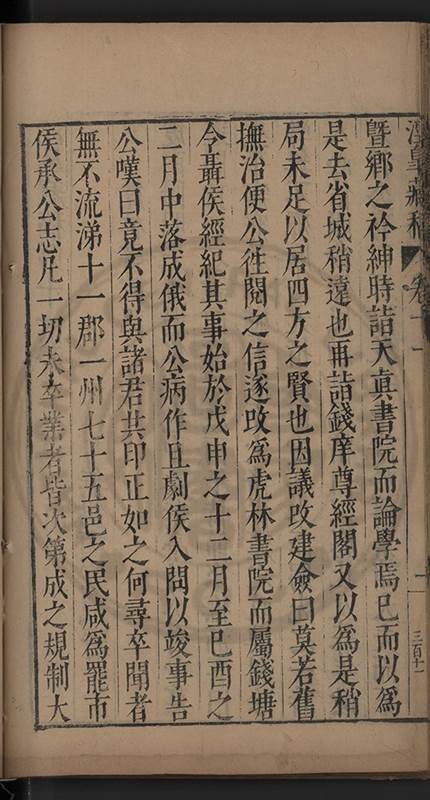 暨鄉之衿紳時詣天眞書院而論學焉巳而以爲
是去省城稍遠也再詣錢庠尊經閣又以爲是稍
局未足以居四方之賢也因議改建僉曰莫若舊
撫治便公徃閱之信遂改爲虎林書院而屬錢塘
令聶侯經紀其事始於戊申之十二月至巳酉之
二月中落成俄而公病作且劇侯入問以竣事告
公嘆曰竟不得與諸君共印正如之何尋卒聞者
無不流涕十一郡一州七十五邑之民咸爲罷市
侯承公志凡一切未卒業者皆次第成之規制大
三百十一